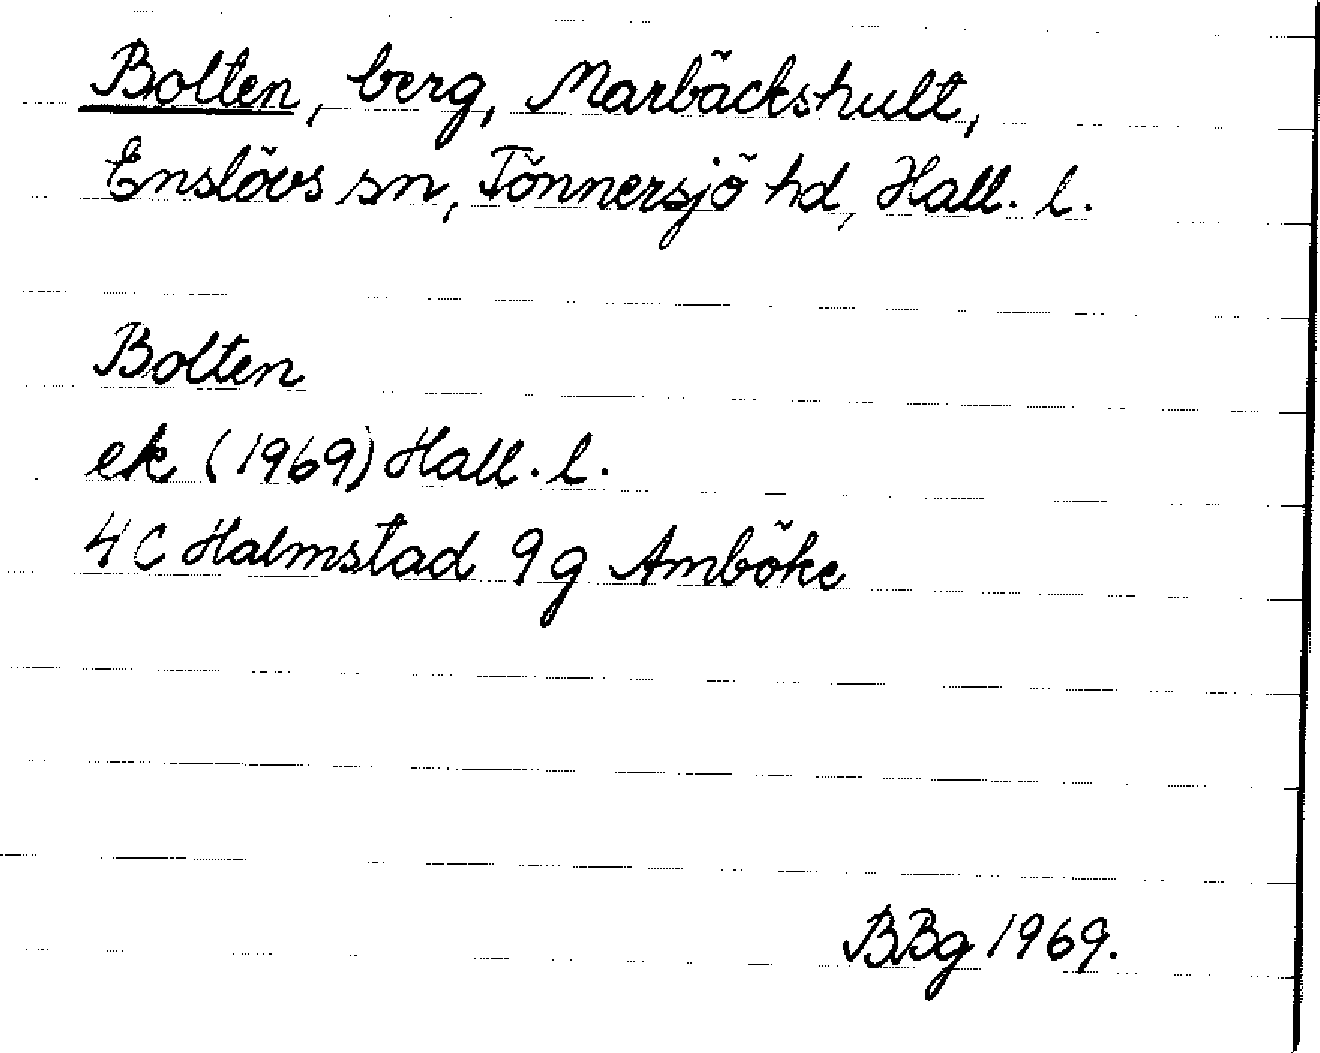 Bolten, berg, Marbäckshult,
Enslövs sn, Tönnersjö hd, Hall. l.
Bolten
ek (1969) Hall. l.
4C Halmstad 9g Amböke
BBg 1969.